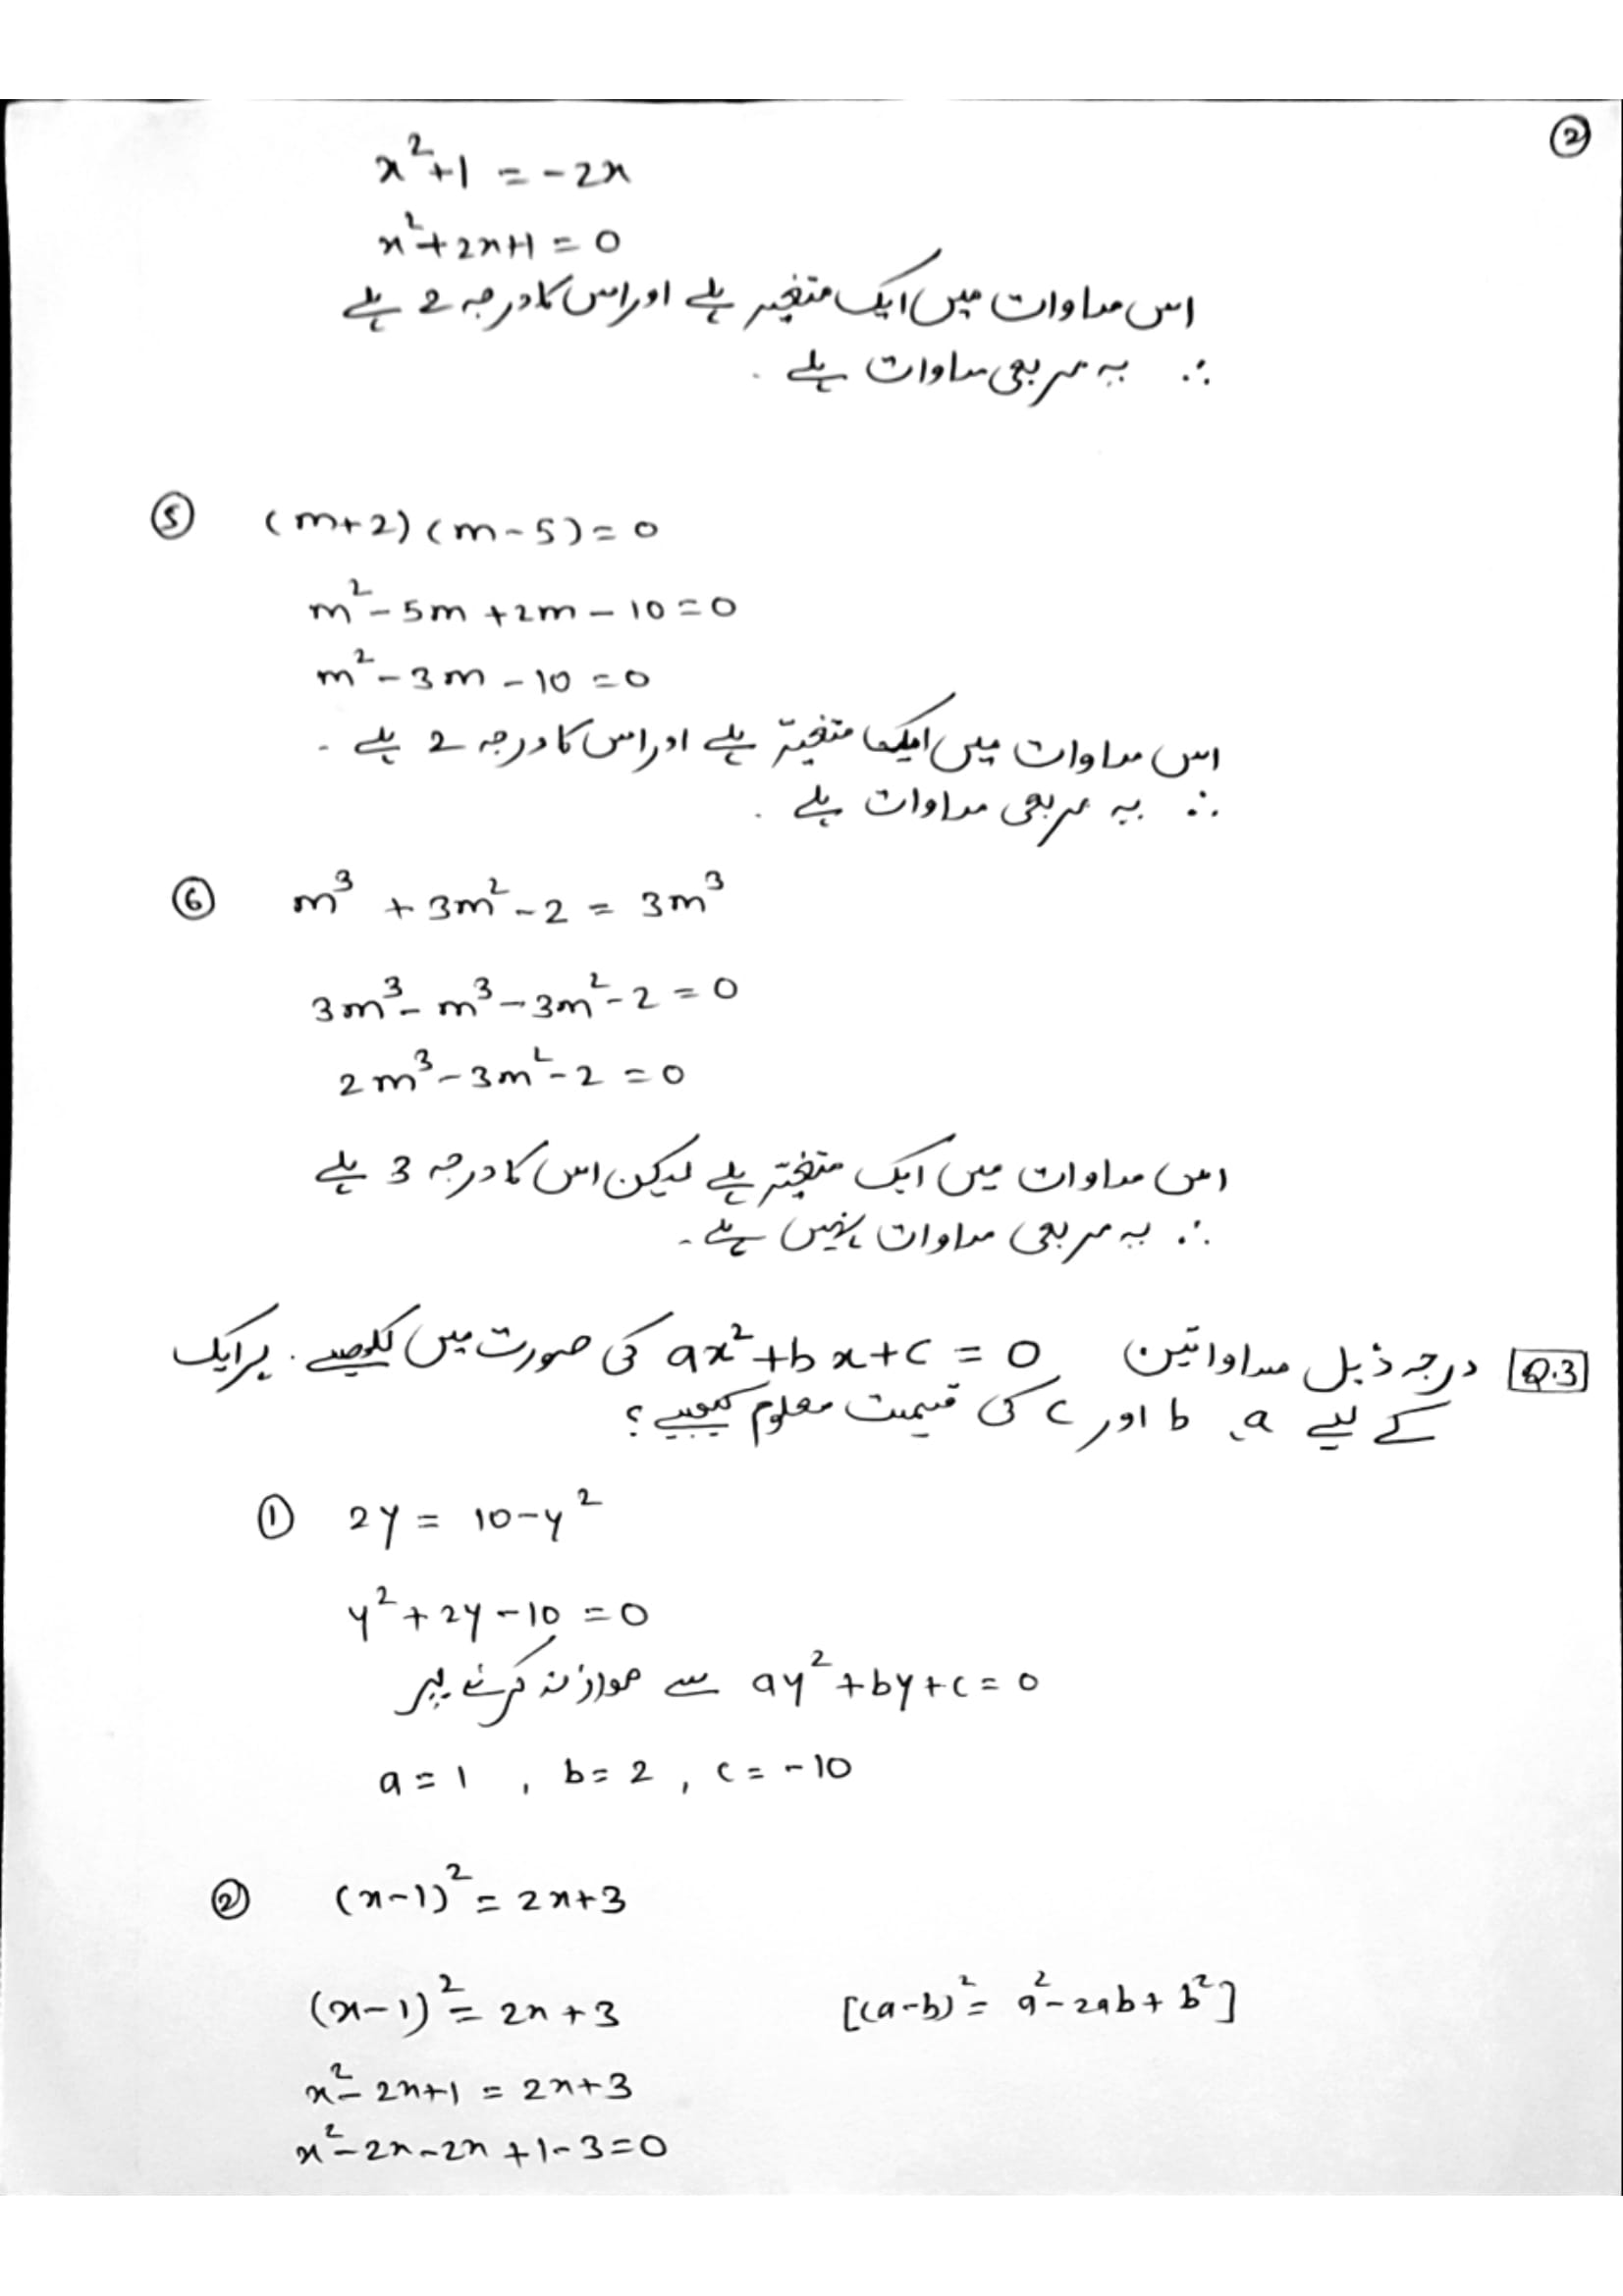 ②
x²+1 = -2x
x²+2x+1 = 0
اس مساوات میں ایک متغیر ہے اور اس کا درجہ 2 ہے
∴ یہ مربعی مساوات ہے .
⑤ (m+2)(m-5)=0
m²-5m+2m-10=0
m²-3m-10=0
اس مساوات میں ایک متغیر ہے اور اس کا درجہ 2 ہے -
∴ یہ مربعی مساوات ہے .
⑥ m³ + 3m²-2 = 3m³
3m³-m³-3m²-2 = 0
2m³-3m²-2 = 0
اس مساوات میں ایک متغیر ہے لیکن اس کا درجہ 3 ہے
∴ یہ مربعی مساوات نہیں ہے -
Q.3 درجہ ذیل مساواتیں ax²+bx+c = 0 کی صورت میں لکھیے . ہر ایک
کے لیے a، b اور c کی قیمت معلوم کیجیے ؟
① 2y = 10-y²
y²+2y-10 = 0
ay²+by+c = 0 سے موازنہ کرنے پر
a = 1 , b = 2 , c = -10
② (x-1)² = 2x+3
(x-1)² = 2x+3 [(a-b)² = a²-2ab+b²]
x²-2x+1 = 2x+3
x²-2x-2x+1-3=0